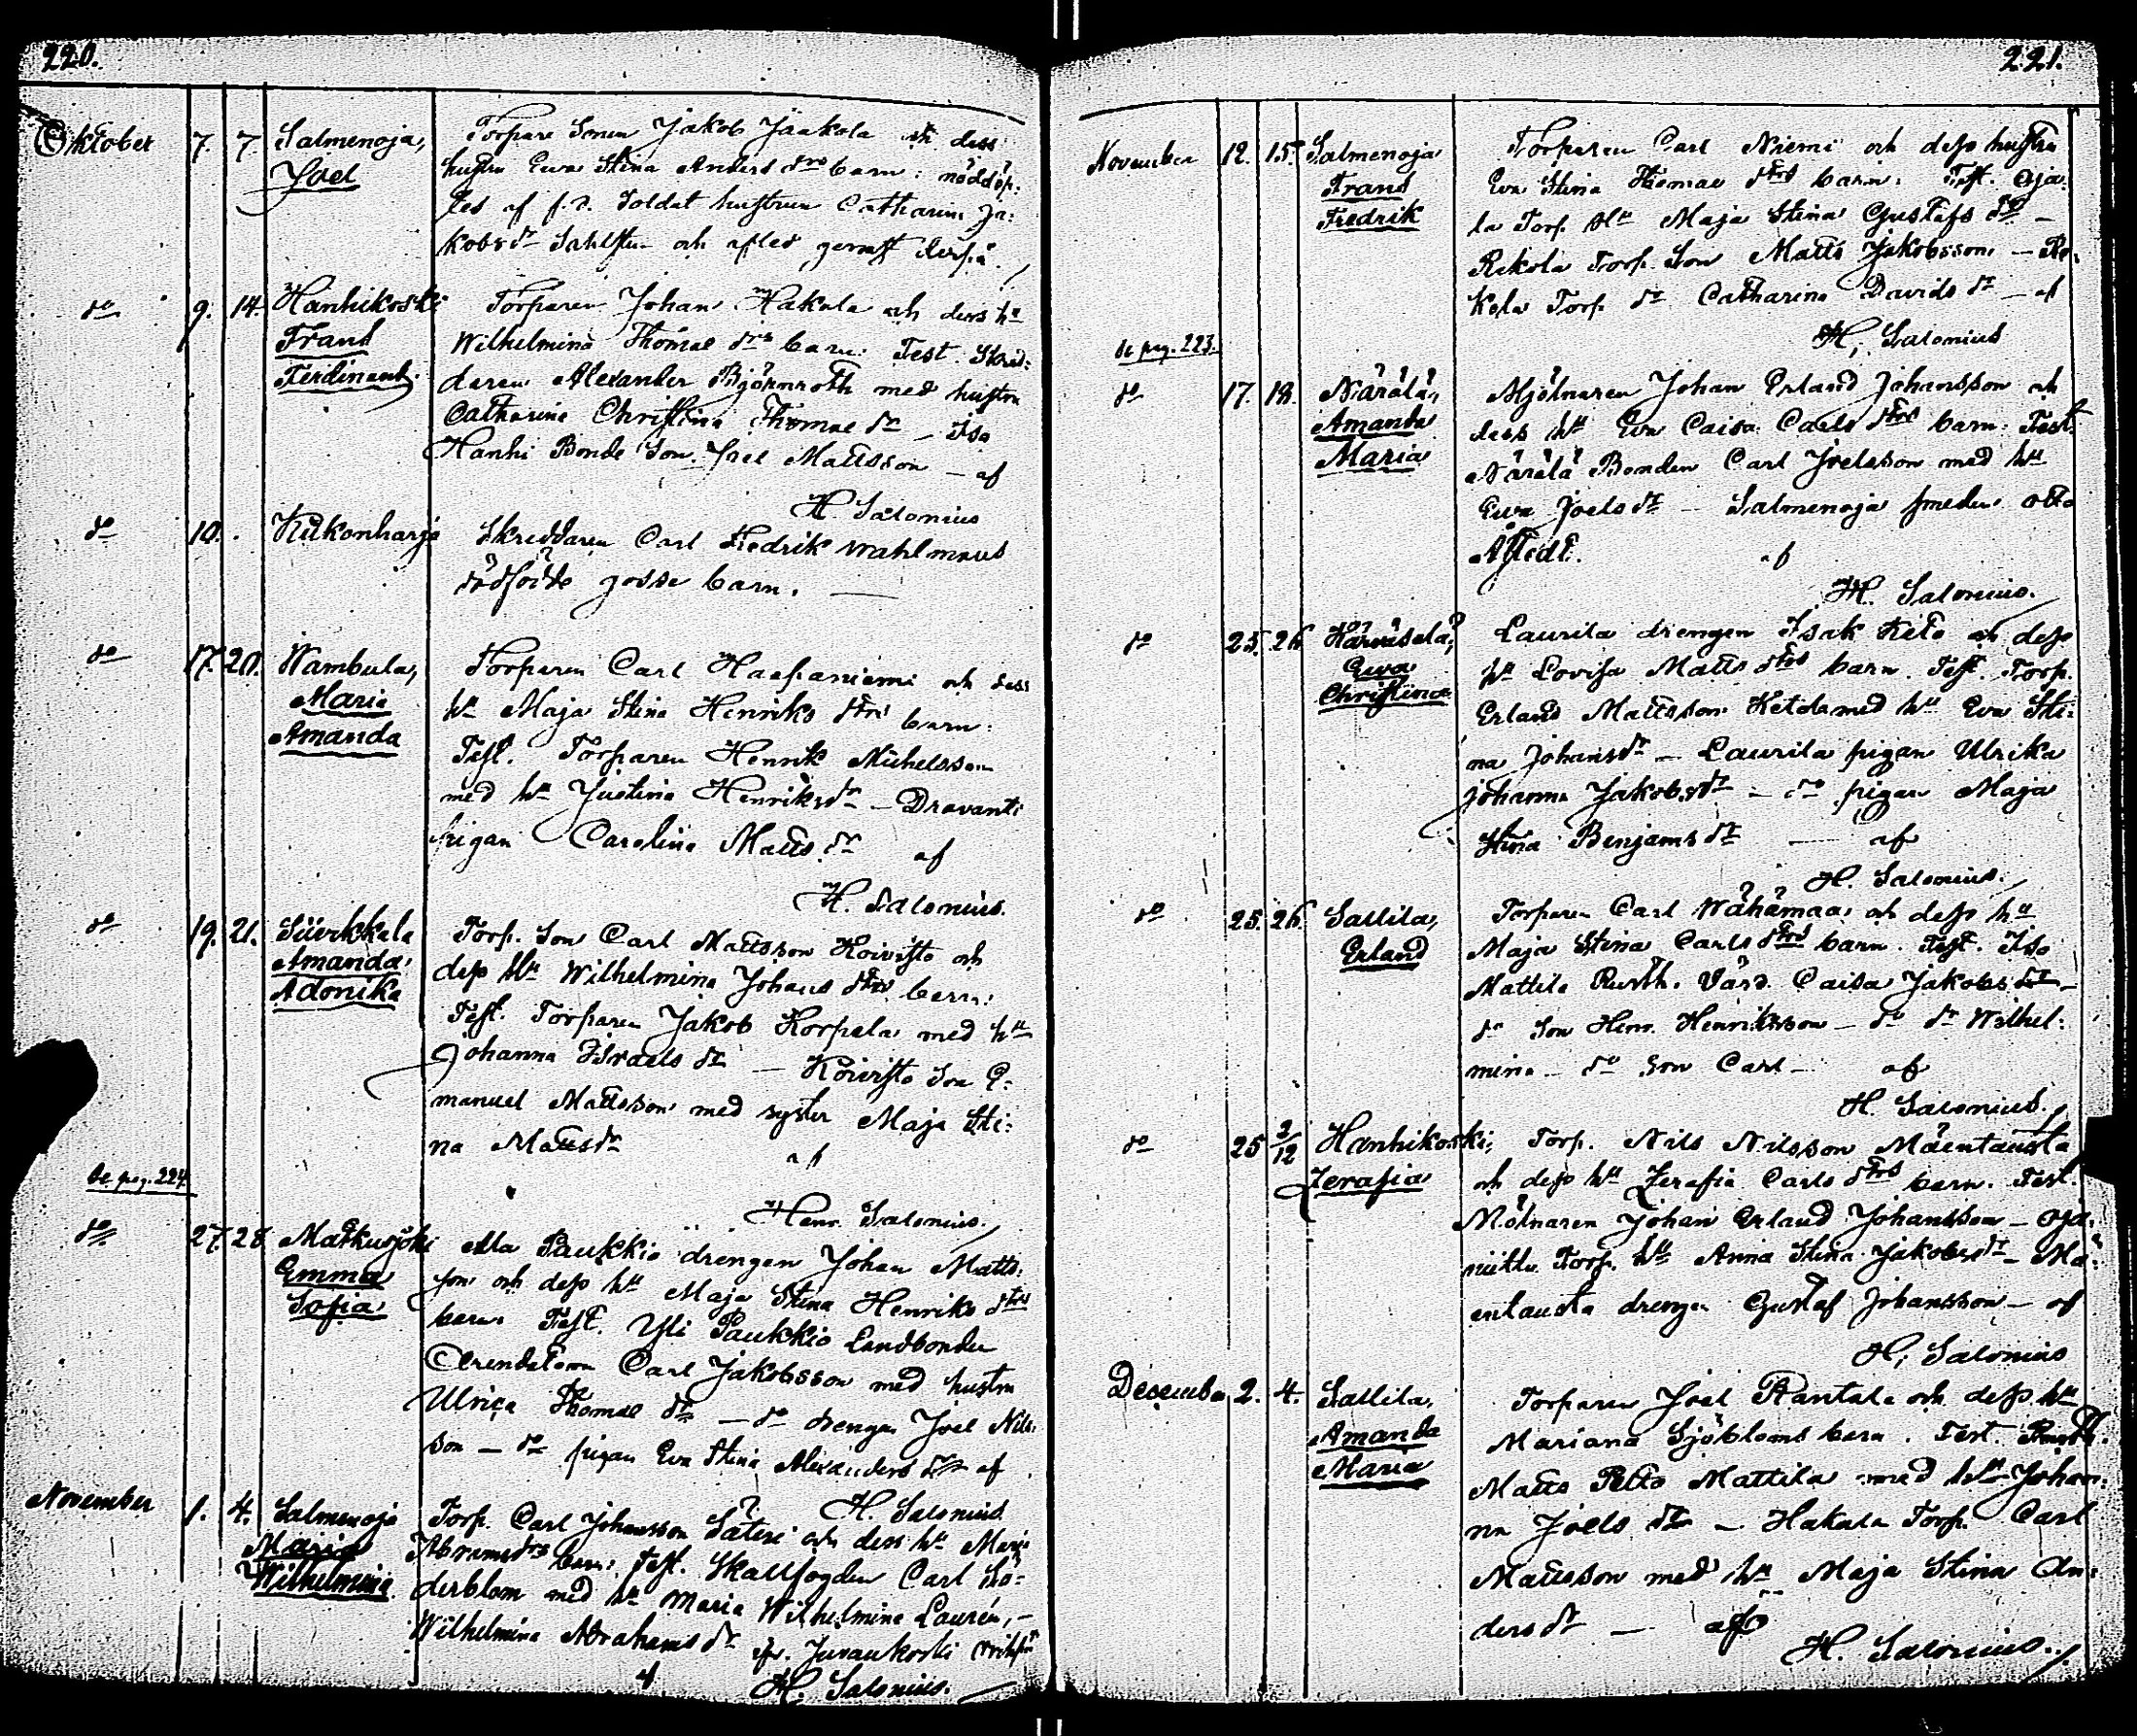 220.
Oktober 7. 7. Salmenoja, Torpare Sonen Jakob Jaakola och dess
Joel hustru Eva Stina Anders drs barn: nöddöp-
tes af f.d. Soldat hustrun Catharina Ja-
kobs dr Sahlsten och afled genast derpå.
do 9. 14. Hanhikoski Torparen Johan Hakala och dess hu
Frans Wilhelmina Thomae drs barn: Test. Skred-
Ferdinand. daren Alexander Björnroth med hustru
Catharina Christina Thomae dr — Iso
Hanhi Bonde Son Joel Mattsson — af
H. Salonius
do 10. Kiikonharja Skreddaren Carl Fredrik Wahlmans
dödfödde gosse barn.
do 17. 20. Wambula, Torparen Carl Haapaniemi och dess
Maria hu Maja Stina Henriks drs barn:
Amanda Test. Torparen Henrik Michelsson
med hu Justina Henriks dr — Dravanti
pigan Carolina Matts dr af
H. Salonius.
do 19. 21. Siverkkala Torp. Son Carl Mattsson Koivisto och
Amanda dess hu Wilhelmina Johans drs barn:
Adonika Test. Torparen Jakob Korpela med hu
Johanna Israels dr — Koivisto Son E-
manuel Mattsson med syster Maja Sti-
na Matts dr af
Se pag. 224.
Henr. Salonius.
do 27. 28. Matkusjoki Ala Paukkio drengen Johan Matts-
Emma son och dess hu Maja Stina Henriks drs
Sofia barn. Test. Yli Paukkio Landbonden
Arendatorn Carl Jakobsson med hustru
Ulrica Thomae dr — do drengen Joel Nils-
son — do pigan Eva Stina Alexanders dr af
H. Salonius.
November 1. 4. Salmenoja Torp. Carl Johansson Säteri och dess hu Maria
Maria Abrams drs barn: Test. Skallfogden Carl Sö-
Wilhelmina derblom med hu Maria Wilhelmina Laurén, —
Wilhelmina Abrahams dr Juvankoski
af H. Salonius.
221.
November 12. 15. Salmenoja Torparen Carl Niemi och dess hustru
Frans Eva Stina Thomae drs barn: Test. Oja-
Fredrik la Torp. hu Maja Stina Gustafs dr —
Rekola Torp. Son Matts Jakobsson — Re-
kola Torp. dr Catharina Davids dr — af
H. Salonius
Se pag. 223.
do 17. 18. Närälä, Mjölnaren Johan Erland Johansson och
Amanda dess hu Eva Caisa Carls drs barn: Test.
Maria Närälä Bonden Carl Joelsson med hu
Eva Joels dr — Salmenoja smeden Otto
af
H. Salonius.
do 25. 26. Härväsala, Laurila drengen Isak Keto och dess
Eva hu Lovisa Matts drs barn. Test. Torp.
Christina Erland Mattsson Ketola med hu Eva Sti-
na Johans dr — Laurila pigan Ulrika
Johanna Jakobs dr — do pigan Maja
Stina Benjams dr — af
H. Salonius.
do 25. 26. Sallila, Torparen Carl Wähämaa och dess hu
Erland Maja Stina Carls drs barn. Test. Iso
Mattila Rusth. Värd. Caisa Jakobs dr —
do Son Henr. Henriksson — do dr Wilhel-
mina — do Son Carl — af
H. Salonius.
do 25 2/12 Hanhikoski, Torp. Nils Nilsson Mäentausta
Serafia och dess hu Serafia Carls drs barn. Test.
Mölnaren Johan Erland Johansson — Oja-
niittu Torp. hu Anna Stina Jakobs dr — Mä-
entausta drengen Gustaf Johansson — af
H. Salonius
December 2. 4. Sallila, Torparen Joel Rantala och dess hu
Amanda Mariana Sjöbloms barn. Test. Rusth.
Maria Matts Pelto Mattila med hu Johan-
na Joels dr — Hakala Torp. Carl
Mattsson med hu Maja Stina An-
ders dr — af
H. Salonius.